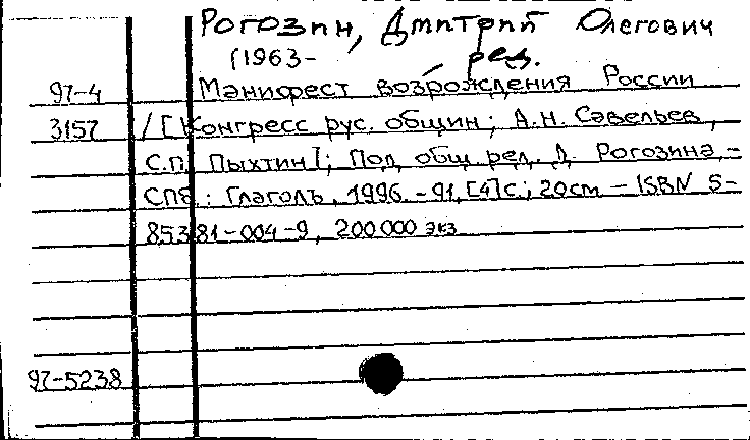 Рогозин, Дмитрий Олегович
(1963-           , ред.
97-4 Манифест возрождения России
3157 / [Конгресс рус. общин; А.Н. Савельев,
С.П. Пыхтин]; Под общ. ред. Д. Рогозина. -
СПб.: Глаголъ, 1996. - 91,[4]с.; 20см - ISBN 5-
85381-004-9, 200000 экз
97-5238